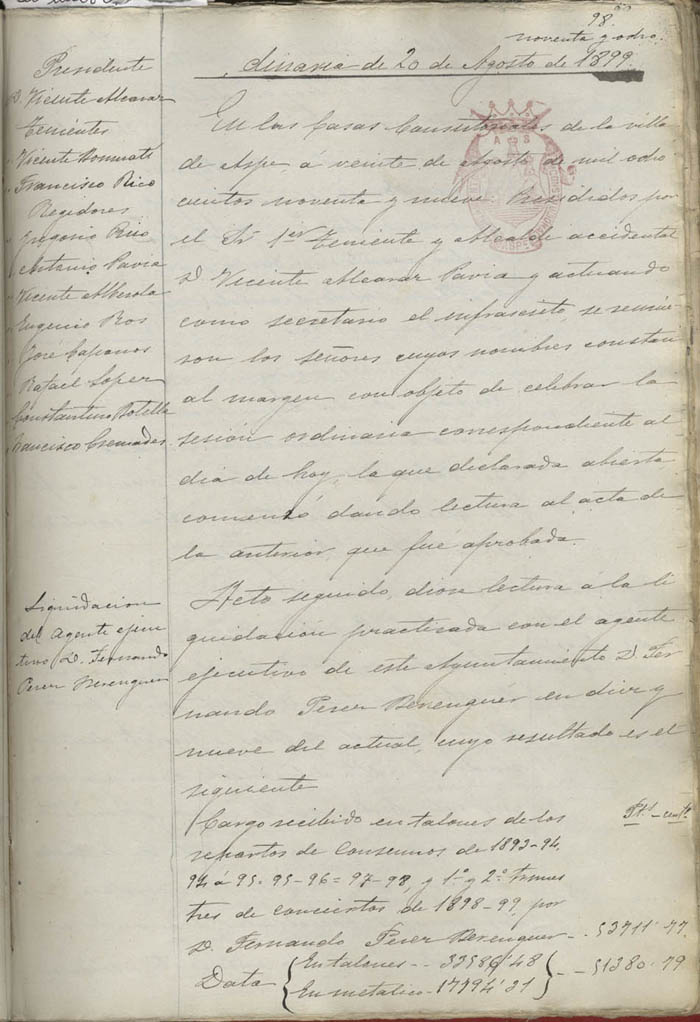 98
noventa y ocho.
Ordinaria de 20 de Agosto de 1899.
Presidente
D. Vicente Alcaraz
Tenientes
" Vicente
" Francisco Rico
Regidores
" Gregorio Rico
" Antonio Pavia
" Vicente Alberola
" Eugenio Ros
" José
" Rafael Lopez
Constantino Botella
Francisco Cremades
En las Casas Consistoriales de la villa
de Aspe, á veinte de Agosto de mil ocho
cientos noventa y nueve. Presididos por
el Sr. 1er Teniente y Alcalde accidental
D. Vicente Alcaraz Pavia y actuando
como secretario el infrascrito, se reunie-
ron los señores cuyos nombres constan
al margen con objeto de celebrar la
sesión ordinaria correspondiente al
dia de hoy, la que declarada abierta
comenzó dando lectura al acta de
la anterior, que fué aprobada.
Liquidacion
del Agente ejecu-
tivo D. Fernando
Perez Berenguer
Acto seguido, diose lectura á la li
quidación practicada con el agente
ejecutivo de este Ayuntamiento D. Fer
nando Perez Berenguer en diez y
nueve del actual, cuyo resultado es el
siguiente
Pts. - cents.
Cargo recibido en talones de los
repartos de Consumos de 1893-94,
94 á 95. 95-96= 97-98, y 1º y 2º trimes
tres de conciertos de 1898-99, por
D. Fernando Perez Berenguer - - 53711'77.
Data { En talones - - 33586'48
En metálico - 17794'31 } - - 51380.79